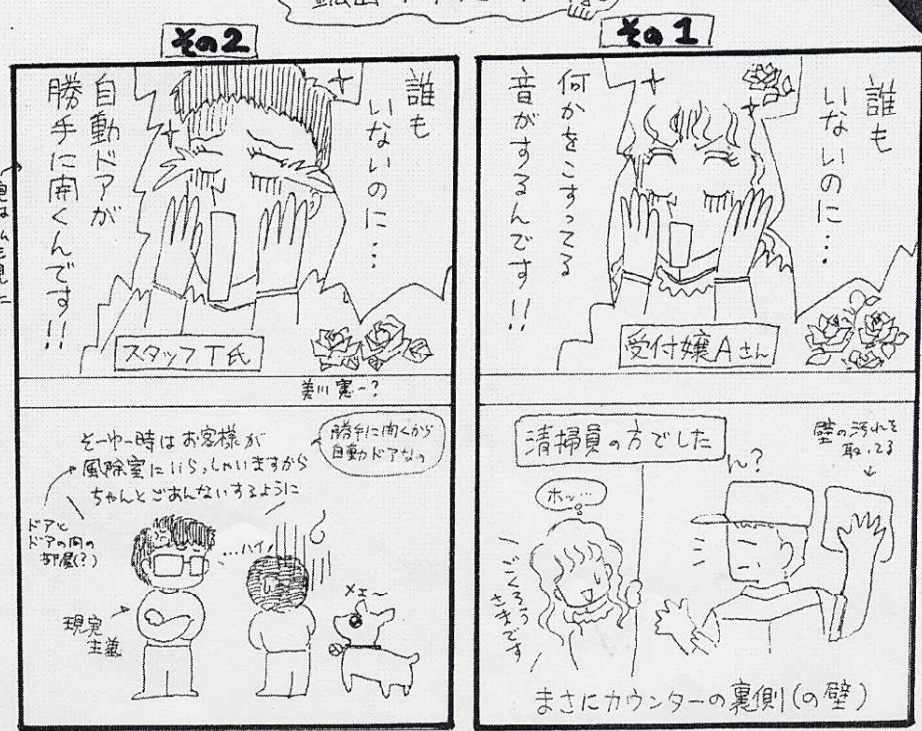 その1
誰も
いないのに…
何かをこすってる
音がするんです!!
受付嬢Aさん
清掃員の方でした
ん?
壁の汚れを
取ってる
ホッ…
ごくろう
さまです
まさにカウンターの裏側(の壁)
その2
誰も
いないのに…
自動ドアが
勝手に開くんです!!
スタッフT氏
美川憲一?
勝手に開くから
自動ドアなの
そーゆー時はお客様が
風除室にいらっしゃいますから
ちゃんとごあんないするように
ドアと
ドアの間の
部屋(?)
…ハイ
現実
主義
メェ〜